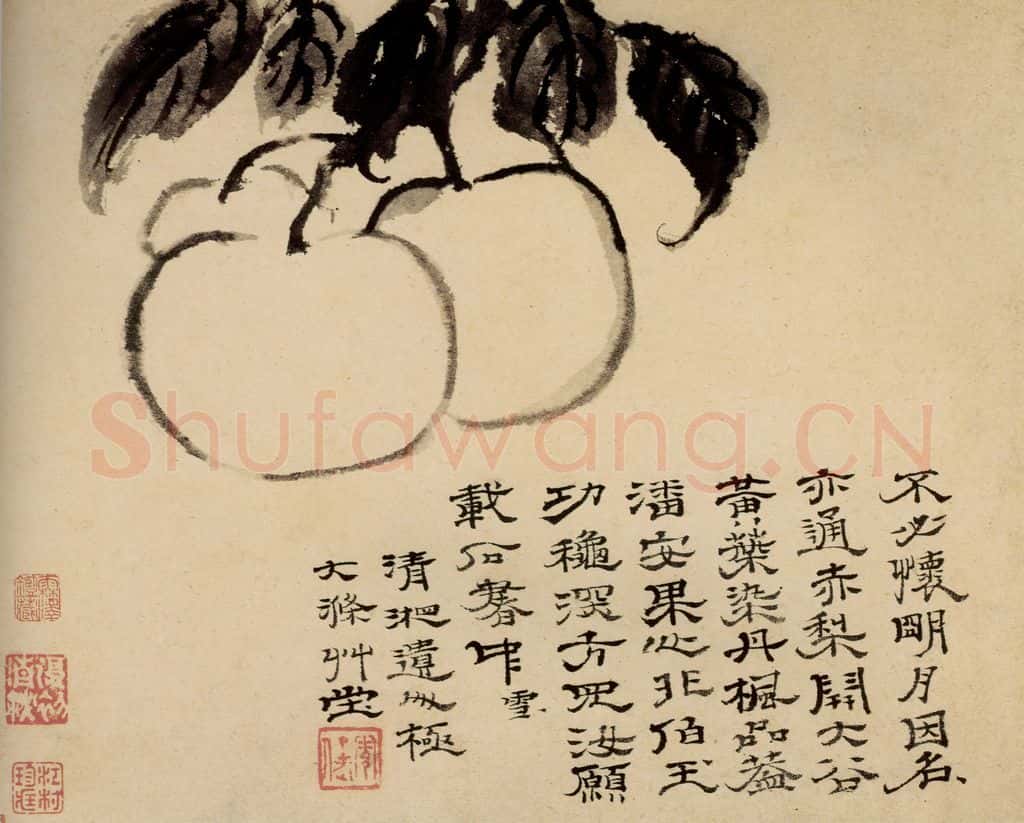 不必懷明月因名、
亦通赤梨開大谷
黃葉染丹楓品蓋
潘安果心非伯玉
功龝深方汝願
載中雪
清湘遺人極
大滌艸堂
Shufawang.CN
江村